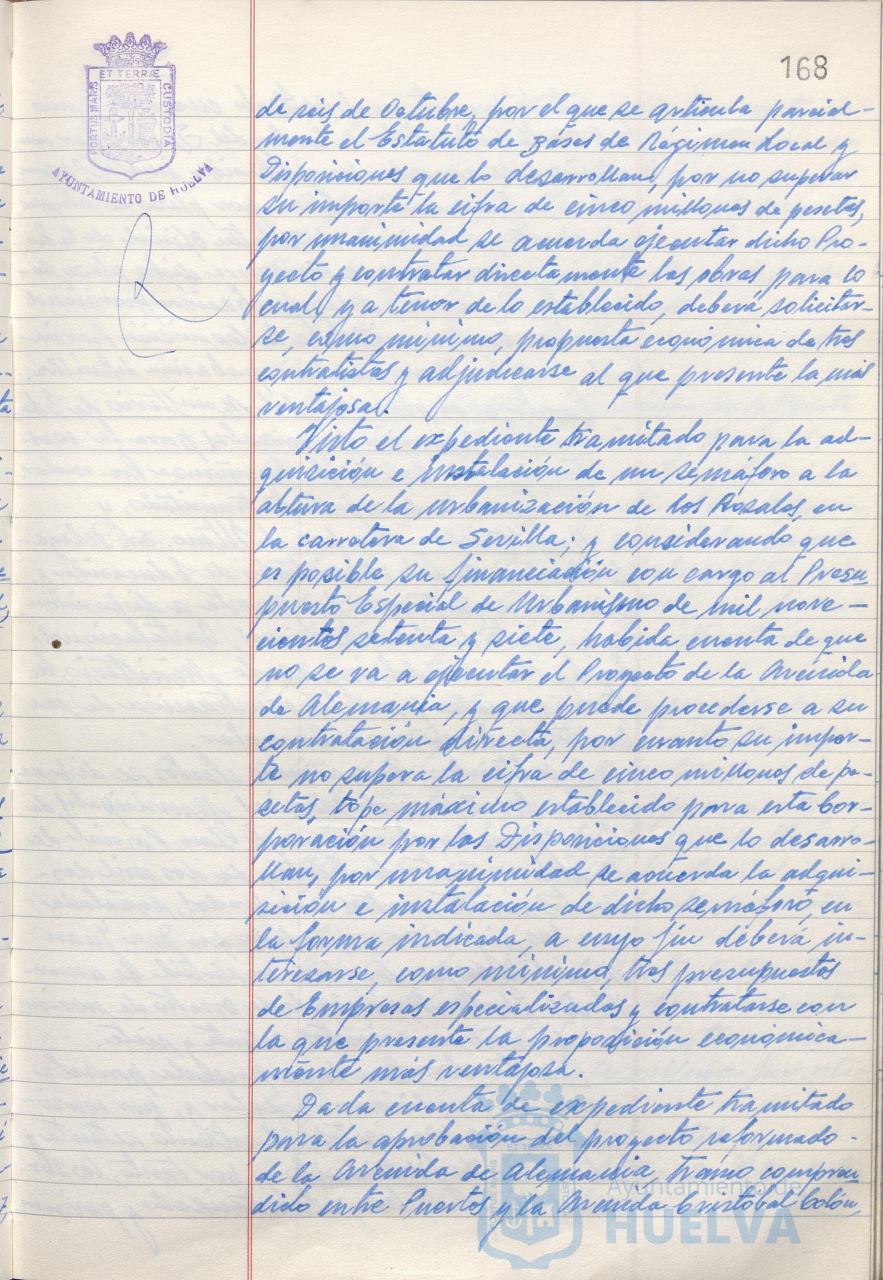 168
PORTUS MARIS ET TERRÆ CUSTODIA
AYUNTAMIENTO DE HUELVA
de seis de Octubre, por el que se articula parcial-
mente el Estatuto de Bases de Régimen Local y
Disposiciones que lo desarrollan, por no superar
su importe la cifra de cinco millones de pesetas,
por unanimidad se acuerda ejecutar dicho Pro-
yecto y contratar directamente las obras, para lo
cual, y a tenor de lo establecido, deberá solicitar-
se, como mínimo, propuesta económica de tres
contratistas y adjudicarse al que presente la más
ventajosa.
Visto el expediente tramitado para la ad-
quisición e instalación de un semáforo a la
altura de la urbanización de Los Rosales, en
la carretera de Sevilla; y considerando que
es posible su financiación con cargo al Presu-
puesto Especial de Urbanismo de mil nove-
cientos setenta y siete, habida cuenta de que
no se va a ejecutar el Proyecto de la Avenida
de Alemania, y que puede procederse a su
contratación directa, por cuanto su impor-
te no supera la cifra de cinco millones de pe-
setas, tope máximo establecido para esta Cor-
poración por las Disposiciones que lo desarro-
llan, por unanimidad se acuerda la adqui-
sición e instalación de dicho semáforo, en
la forma indicada, a cuyo fin deberá in-
teresarse, como mínimo, tres presupuestos
de Empresas especializadas y contratarse con
la que presente la proposición económica-
mente más ventajosa.
Dada cuenta de expediente tramitado
para la aprobación del proyecto reformado
de la Avenida de Alemania, tramo compren
dido entre Puertos y la Avenida Cristóbal Colón,
Ayuntamiento de
HUELVA